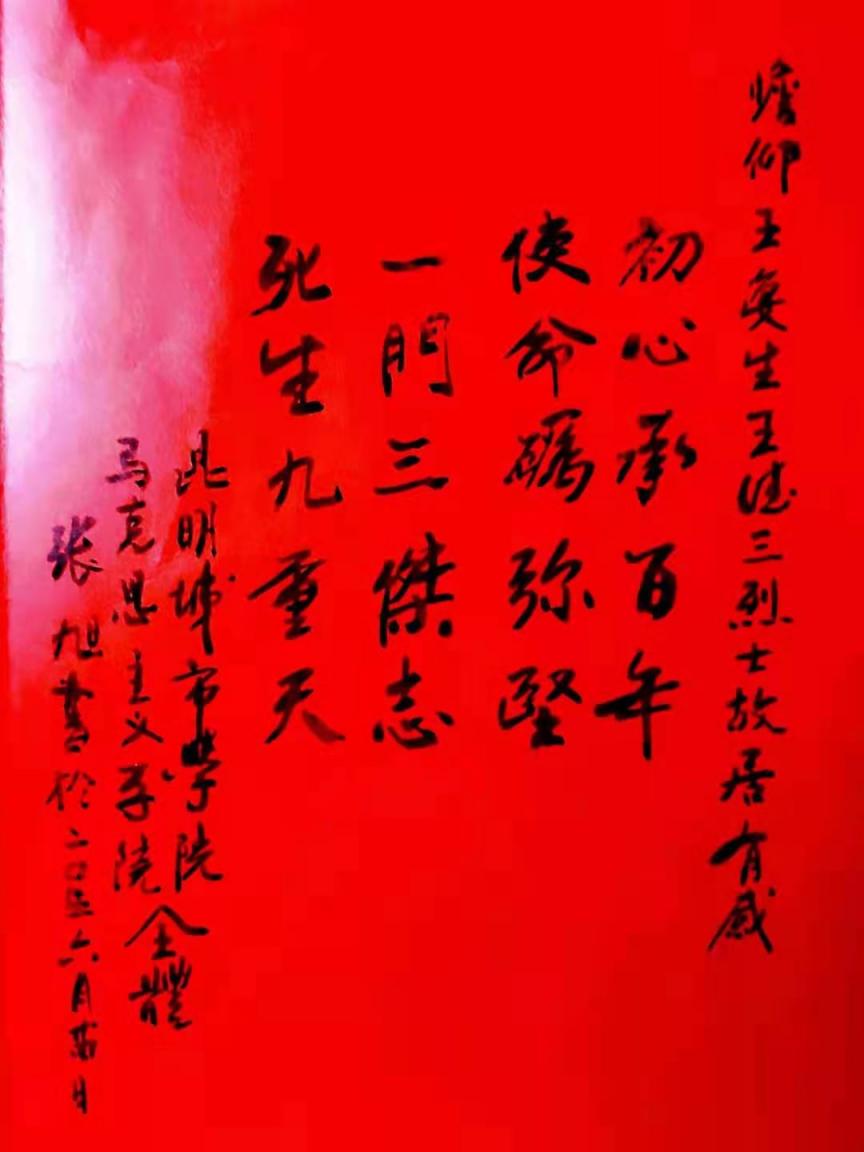 瞻仰王复生王德三烈士故居有感
初心承百年
使命矚弥堅
一門三傑志
死生九重天
昆明城市學院
马克思主义学院全體
张旭書於二〇五六月